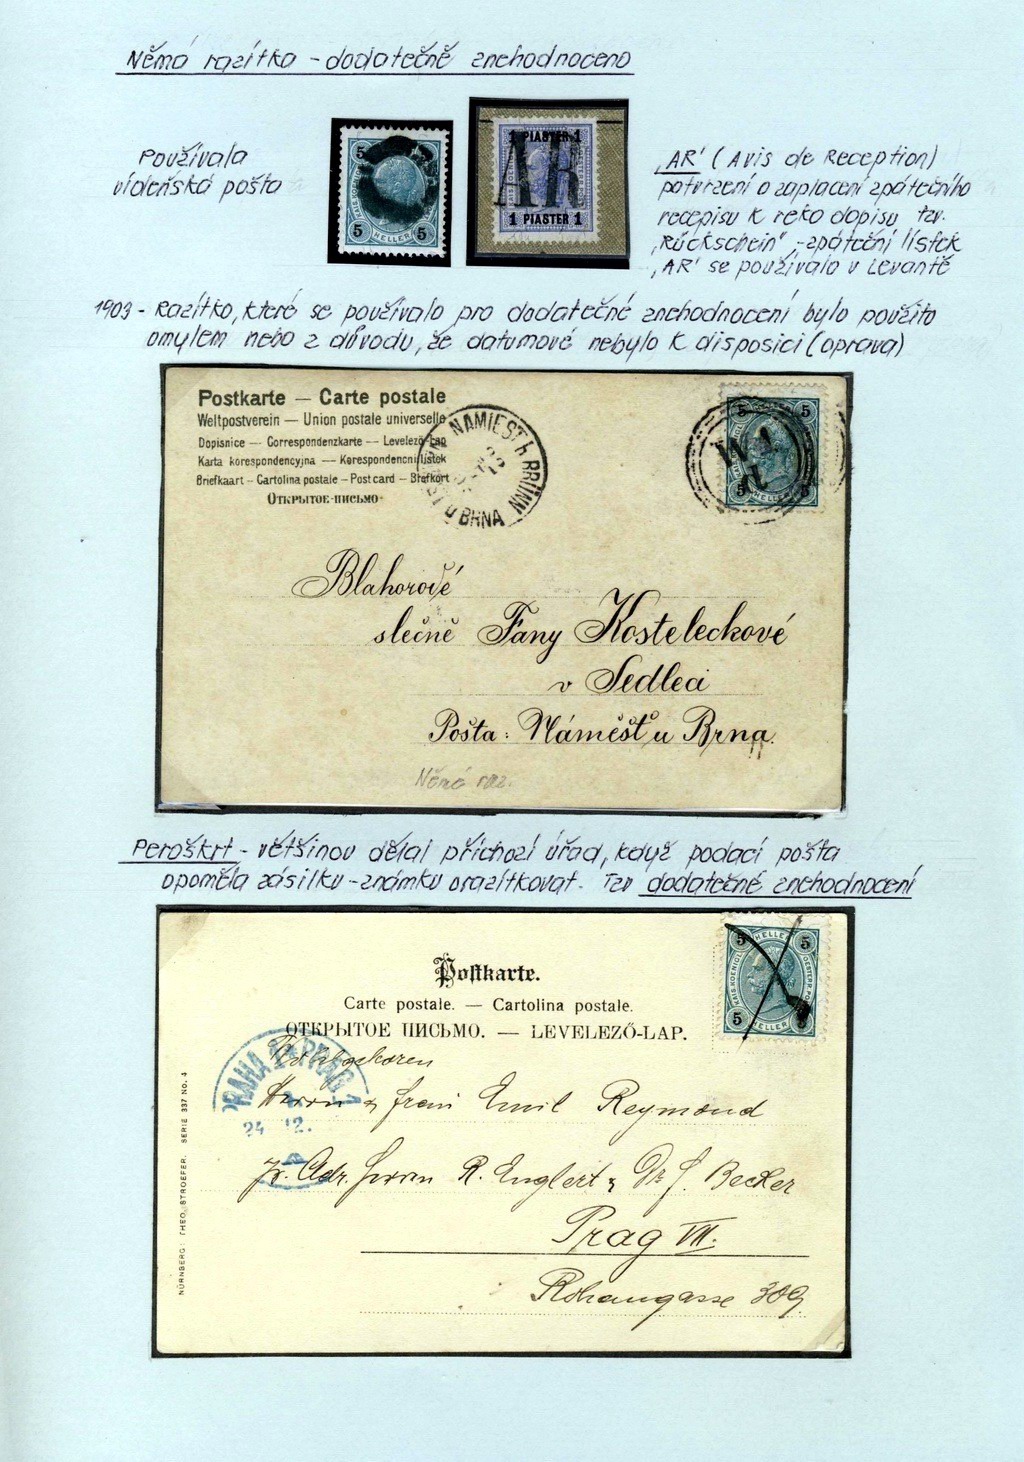 Němá razítka - dodatečně znehodnoceno
Používala
vídeňská pošta
5 5
5 HELLER 5
1 PIASTER 1
AR
1 PIASTER 1
„AR" (Avis de Reception)
potvrzení o zaplacení zpátečního
recepisu k reko dopisu tzv.
„Rückschein" - zpáteční lístek
„AR" se používalo v Levantě
1903 - Razítko, které se používalo pro dodatečné znehodnocení bylo použito
omylem nebo z důvodu, že datumové nebylo k disposici (oprava)
Postkarte — Carte postale
Weltpostverein — Union postale universelle
Dopisnice — Correspondenzkarte — Levelező-Lap
Karta korespondencyjna — Korespondenční lístek
Briefkaart — Cartolina postale — Post card — Brefkort
Открытое письмо
NAMIEST b. BRÜNN
u BRNA
5 5
5 HELLER 5
Blahorově
slečně Fany Kosteleckové
v Sedleci
Pošta: Náměšť u Brna.
Němé raz.
Peroškrt - většinou dělal příchozí úřad, když podací pošta
opoměla zásilku - známku orazítkovat. Tzv dodatečné znehodnocení
5 HELLER 5
5 HELLER 5
Postkarte.
Carte postale. — Cartolina postale.
ОТКРЫТОЕ ПИСЬМО. — LEVELEZŐ-LAP.
PRAHA 1 PRAG 1
24 12.
Herrn & Frau Emil Reymond
pr. Adr. Herrn R. Englert & Dr. J. Becker
Prag VII.
Rohangasse 309.
NÜRNBERG: THEO. STROEFER. SERIE 337 No. 4